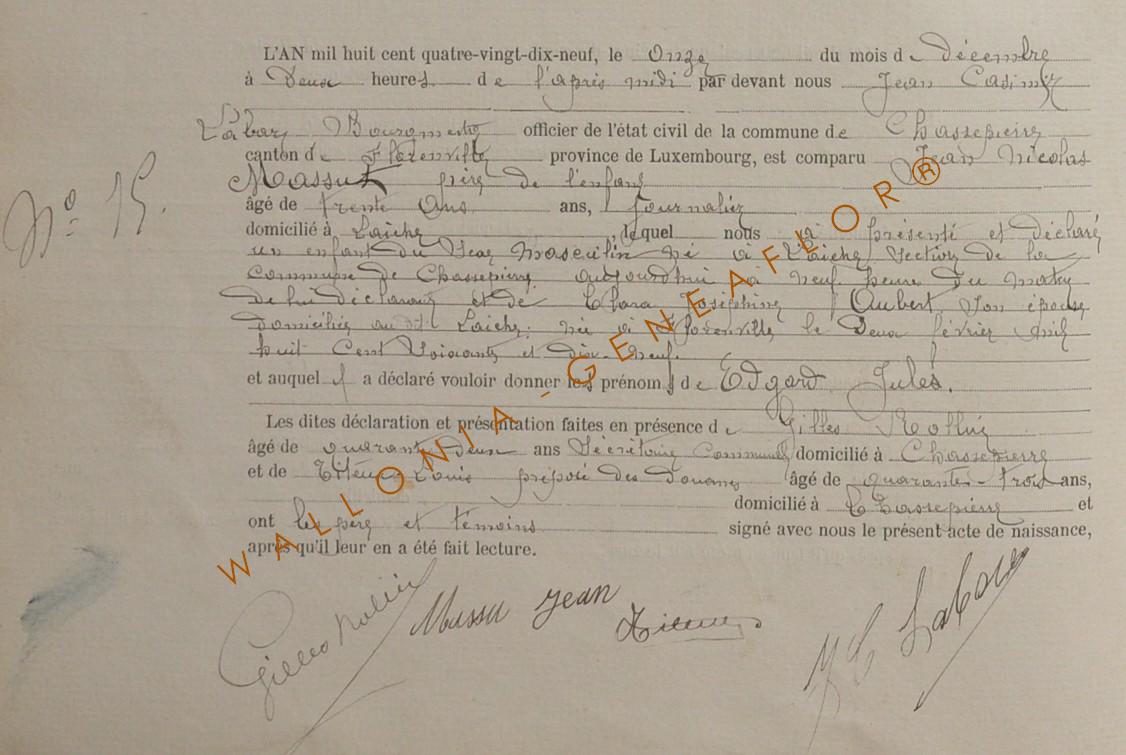 L'AN mil huit cent quatre-vingt-dix-neuf, le Onze du mois de décembre
à Deux heures de l'après midi par devant nous Jean Casimir
Labar, Bourgmestre officier de l'état civil de la commune de Chassepierre
canton de Florenville province de Luxembourg, est comparu Jean Nicolas
Massut père de l'enfant
N° 15.
âgé de trente Ans ans, Journalier
domicilié à Laiche, lequel nous a présenté et déclaré
un enfant du Sexe masculin né à Laiche, Section de la
Commune de Chassepierre, aujourd'hui à neuf heure du matin
de lui déclarant et de Clara Joséphine Aubert Son épouse
domiciliée au dit Laiche, née à Florenville le Deux février mil
huit Cent Soixante et dix-neuf.
et auquel il a déclaré vouloir donner les prénoms de Edgard Jules.
Les dites déclaration et présentation faites en présence de Gilles
âgé de quarante deux ans Sécrétaire Communal domicilié à Chassepierre
et de Louis préposé des Douanes âgé de quarante-trois ans,
domicilié à Chassepierre et
ont les père et témoins signé avec nous le présent acte de naissance,
après qu'il leur en a été fait lecture.
Gilles Massu Jean
WALLONIA-GENEAFLOR®